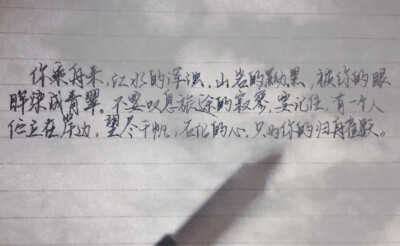 你乘舟来，江水的浑浊，山岩的黝黑，被你的眼
眸染成青翠。不要叹息旅途的寂寥，要记住，有一个人
伫立在岸边，望尽千帆，石化的心，只为你的归舟雀跃。